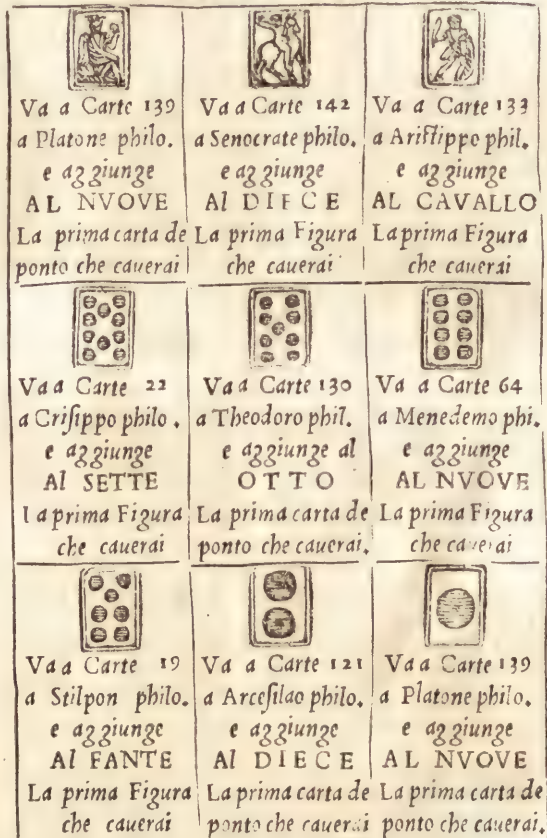 Va a Carte 139
a Platone philo.
e aggiunge
AL NVOVE
La prima carta de
ponto che cauerai
Va a Carte 142
a Senocrate philo.
e aggiunge
Al DIECE
La prima Figura
che cauerai
Va a Carte 133
a Ariſtippo phil.
e aggiunge
AL CAVALLO
La prima Figura
che cauerai
Va a Carte 22
a Criſippo philo.
e aggiunge
Al SETTE
La prima Figura
che cauerai
Va a Carte 130
a Theodoro phil.
e aggiunge al
OTTO
La prima carta de
ponto che cauerai.
Va a Carte 64
a Menedemo phi.
e aggiunge
AL NVOVE
La prima Figura
che cauerai
Va a Carte 19
a Stilpon philo.
e aggiunge
Al FANTE
La prima Figura
che cauerai
Va a Carte 121
a Arceſilao philo.
e aggiunge
Al DIECE
La prima carta de
ponto che cauerai
Va a Carte 139
a Platone philo.
e aggiunge
AL NVOVE
La prima carta de
ponto che cauerai.